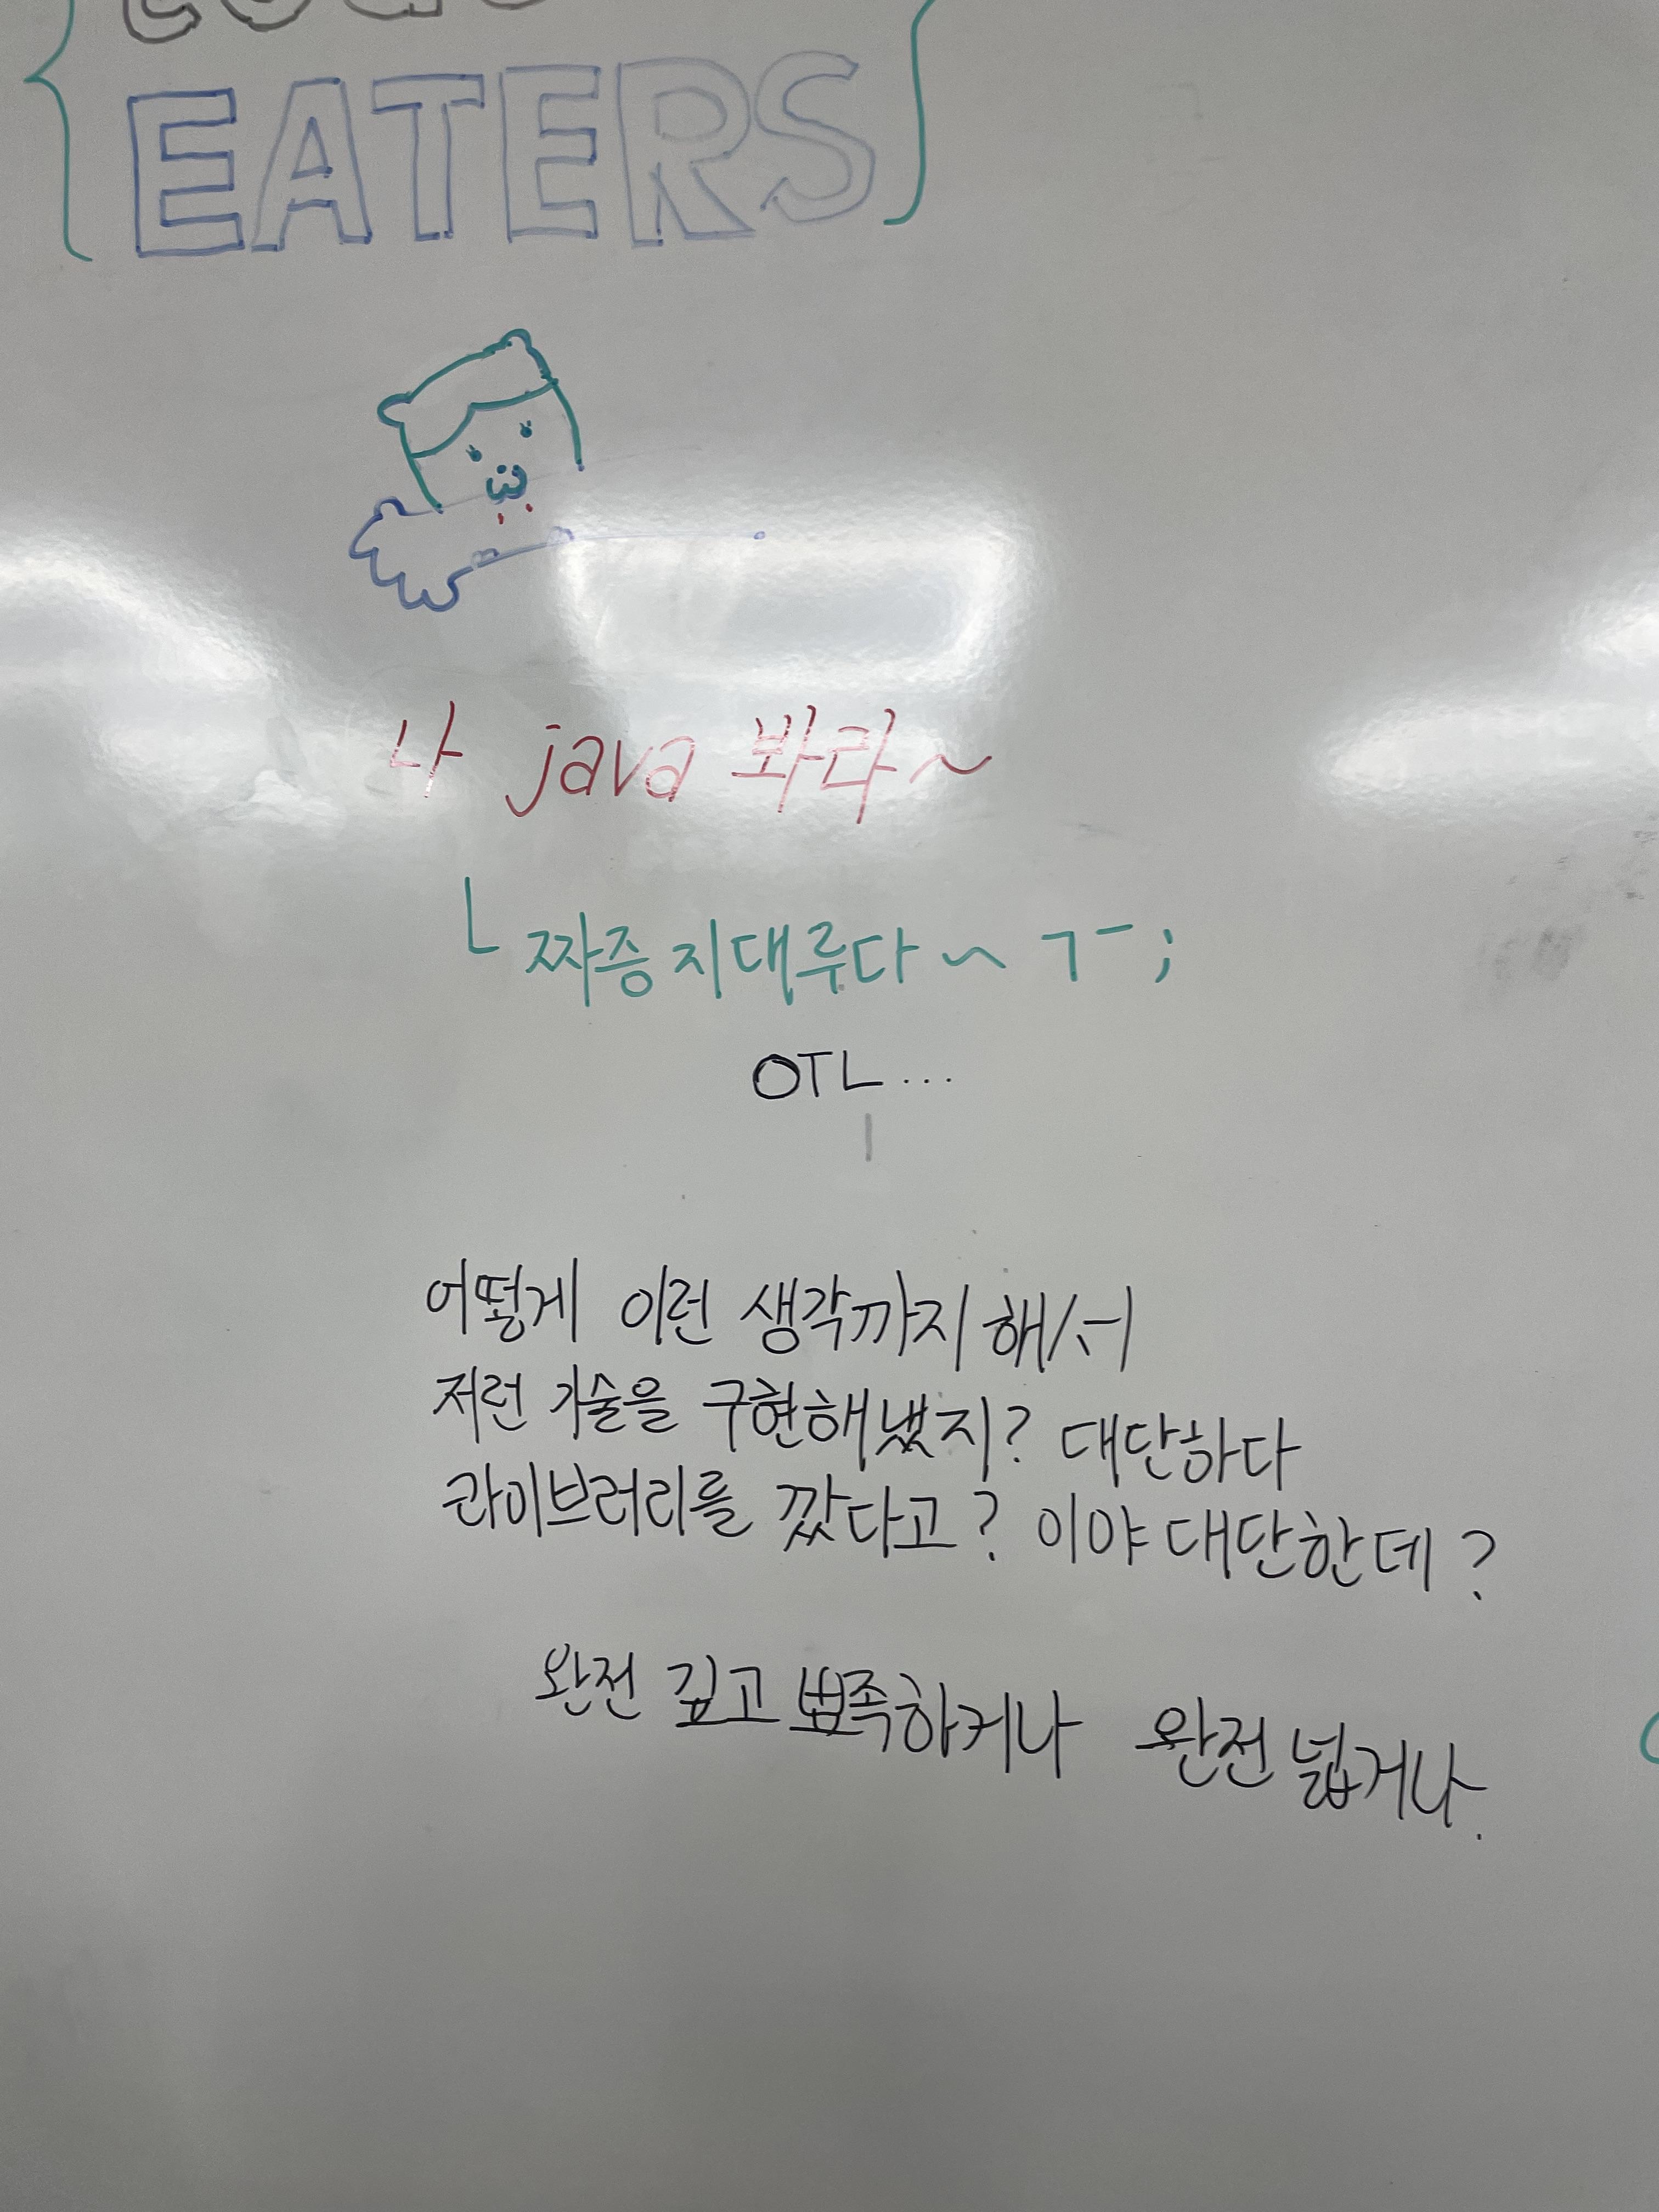 EATERS
나 java 봐라~
ㄴ 짜증지대루다~ ㄱ-;
OTL...
어떻게 이런 생각까지 해서
저런 기술을 구현해냈지? 대단하다
라이브러리를 깠다고? 이야 대단한데?
완전 깊고 뾰족하거나 완전 넓거나.